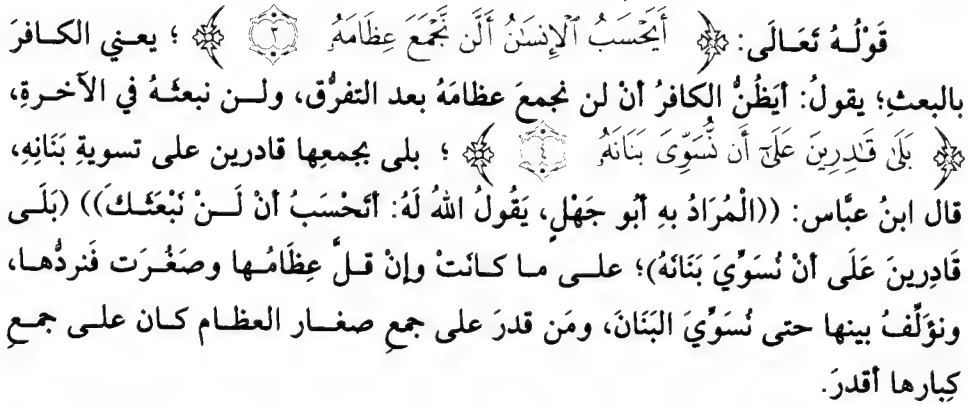 قَوْلُهُ تَعَالَى: ﴿ أَيَحْسَبُ ٱلْإِنسَٰنُ أَلَّن نَّجْمَعَ عِظَامَهُۥ ٣ ﴾ ؛ يعني الكافرَ
بالبعثِ؛ يقولُ: أيَظُنُّ الكافرُ أنْ لن نجمعَ عظامَهُ بعد التفرُّق، ولن نبعثَهُ في الآخرةِ،
﴿ بَلَىٰ قَٰدِرِينَ عَلَىٰٓ أَن نُّسَوِّىَ بَنَانَهُۥ ٤ ﴾ ؛ بلى بجمعِها قادرين على تسويةِ بَنَانِهِ،
قال ابنُ عبَّاس: ((الْمُرَادُ بهِ أبُو جَهْلٍ، يَقُولُ اللهُ لَهُ: أتَحْسَبُ أنْ لَنْ نَبْعَثَكَ)) (بَلَى
قَادِرِينَ عَلَى أنْ نُسَوِّيَ بَنَانَهُ)؛ على ما كانَتْ وإنْ قلَّ عِظَامُها وصَغُرَت فَنردُّها،
ونؤَلِّفُ بينها حتى نُسَوِّيَ البَنَانَ، ومَن قدرَ على جمعِ صغار العظام كان على جمعِ
كِبارها أقدرَ.